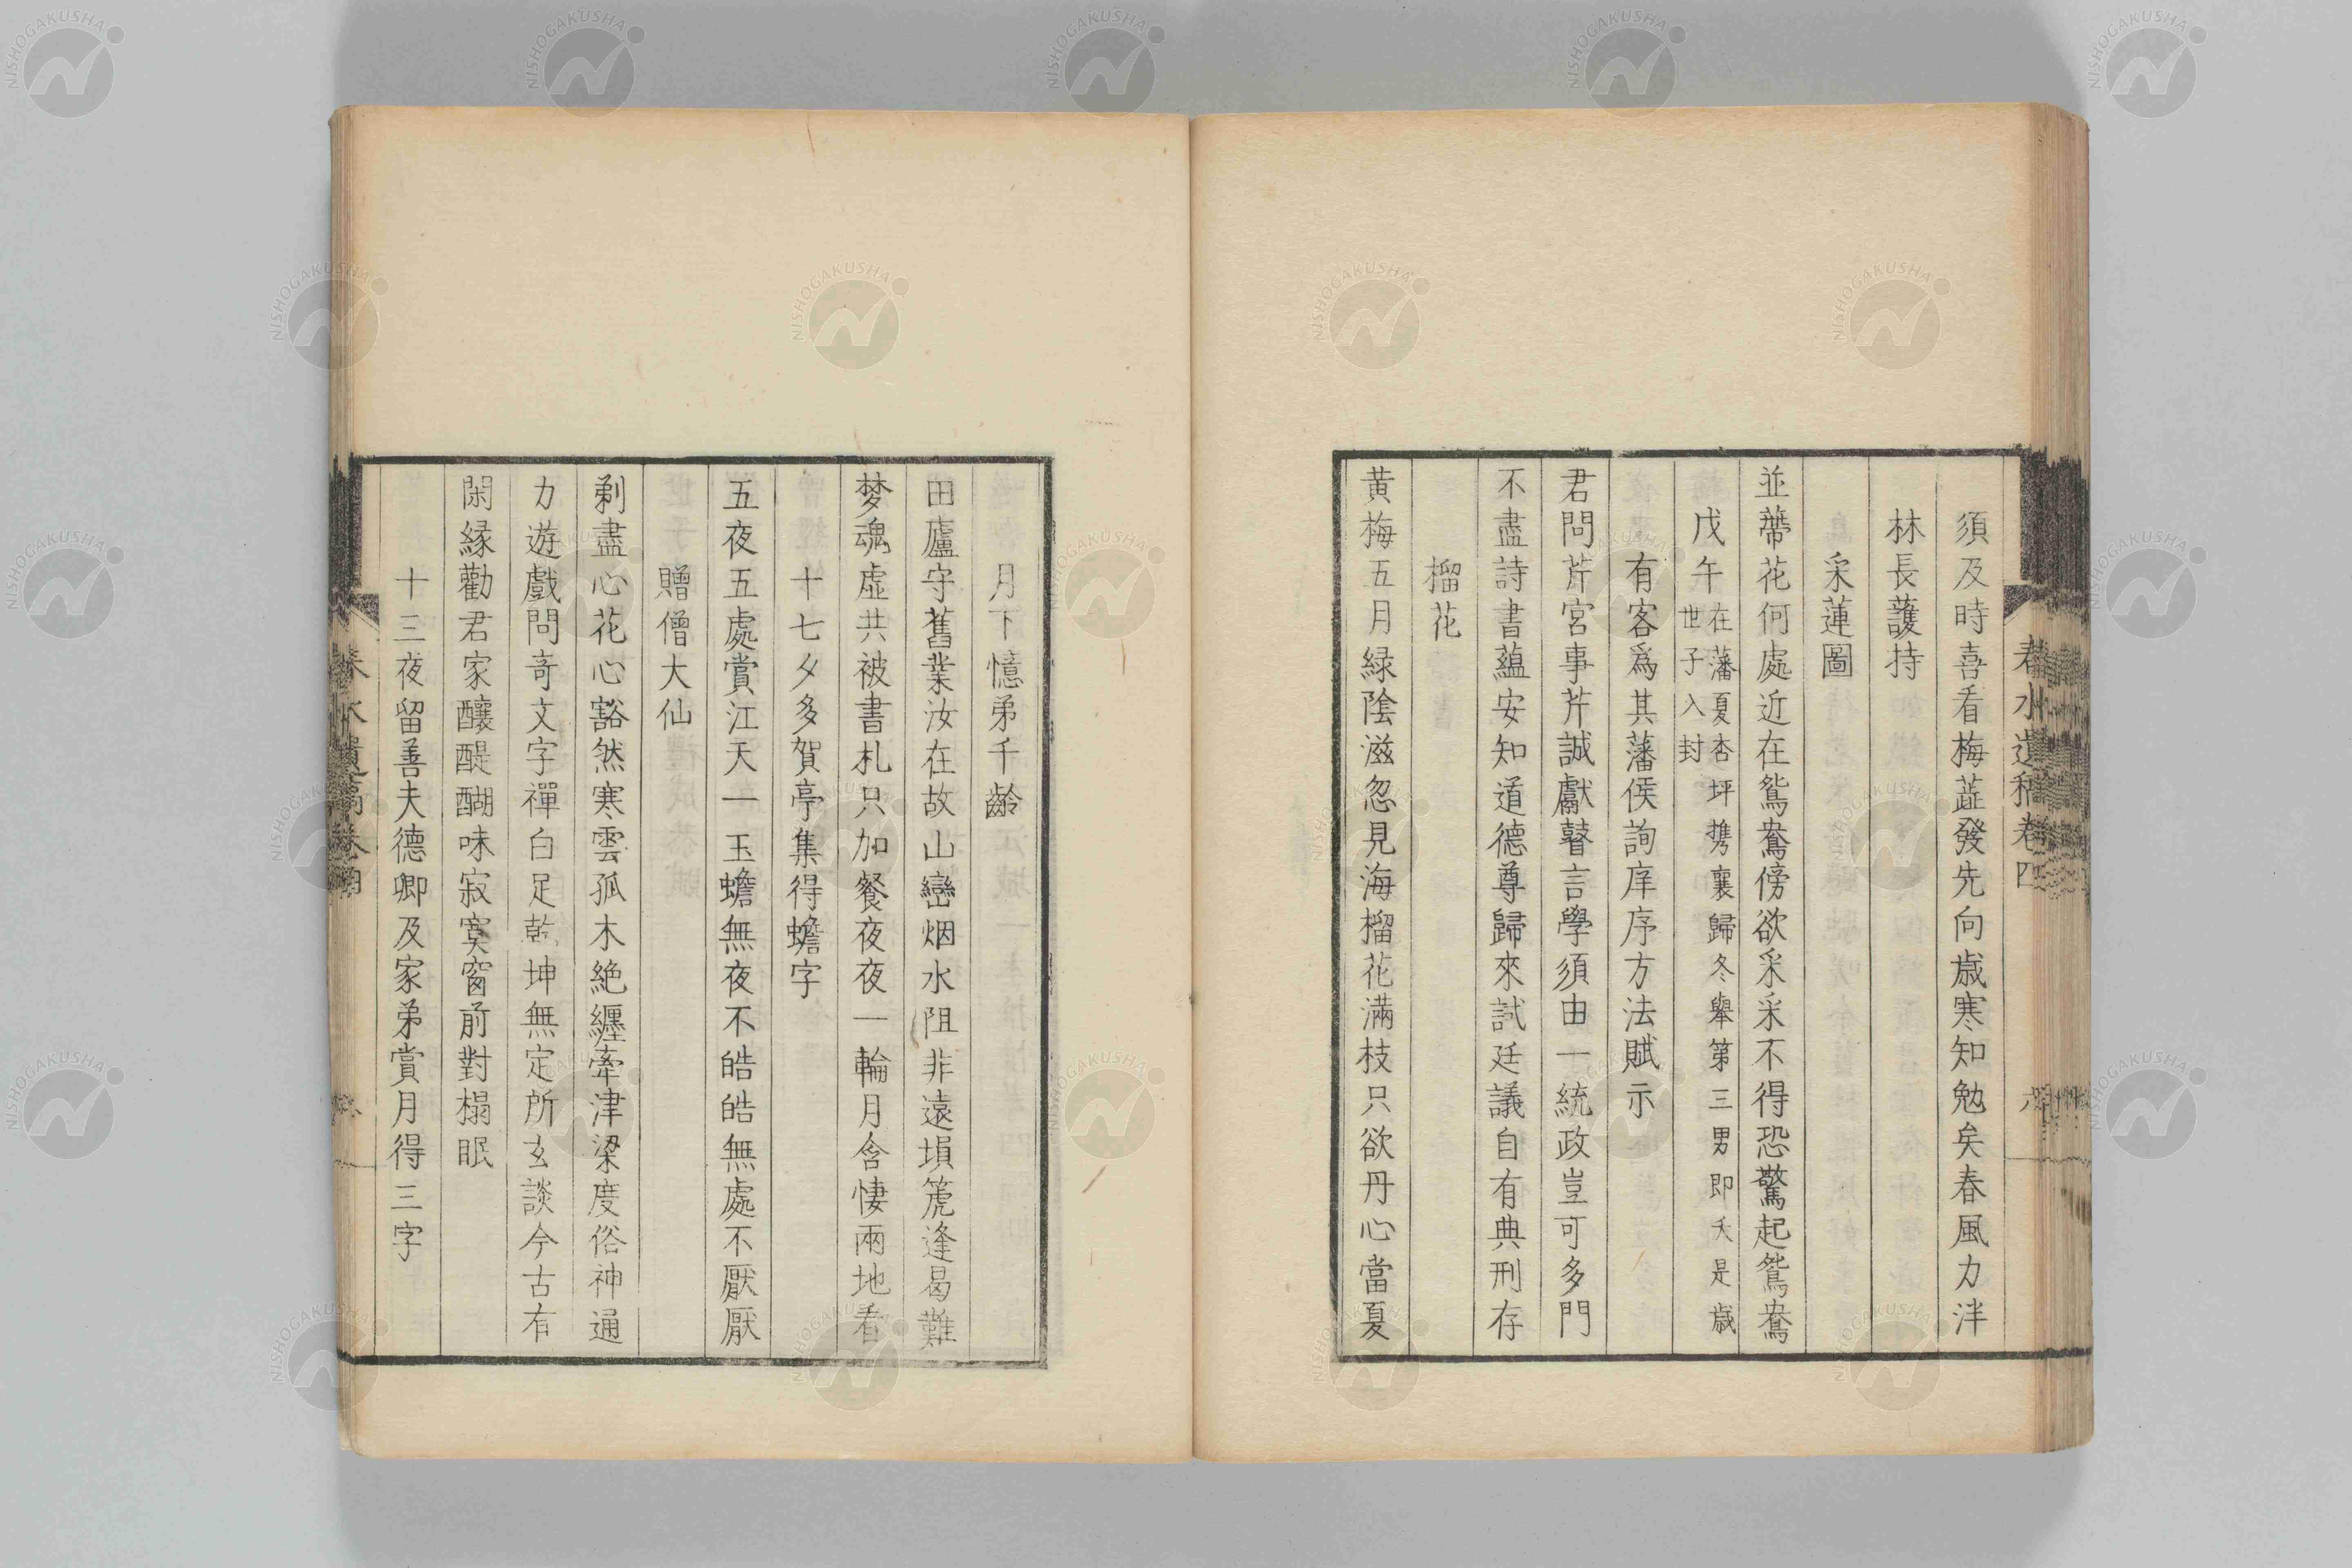 須及時喜看梅蕋發先向歳寒知勉矣春風力泮
林長護持
采蓮圖
並蔕花何處近在鴛鴦傍欲采采不得恐驚起鴛鴦
戊午在藩夏杏坪携襄歸冬舉第三男即夭是歳
世子入封
有客爲其藩侯詢庠序方法賦示
君問芹宮事芹誠獻瞽言學須由一統政豈可多門
不盡詩書蘊安知道德尊歸來試廷議自有典刑存
榴花
黄梅五月緑陰滋忽見海榴花滿枝只欲丹心當夏
春水遺稿卷四
六
月下憶弟千齡
田廬守舊業汝在故山巒烟水阻非遠塤箎逢曷難
梦魂虚共被書札只加餐夜夜一輪月含悽兩地看
十七夕多賀亭集得蟾字
五夜五處賞江天一玉蟾無夜不皓皓無處不厭厭
贈僧大仙
剃盡心花心豁然寒雲孤木絶纒牽津梁度俗神通
力遊戲問奇文字禪白足乾坤無定所玄談今古有
閑縁勸君家釀醍醐味寂寞窗前對榻眠
十三夜留善夫德卿及家弟賞月得三字
春水遺稿卷四
NISHOGAKUSHA